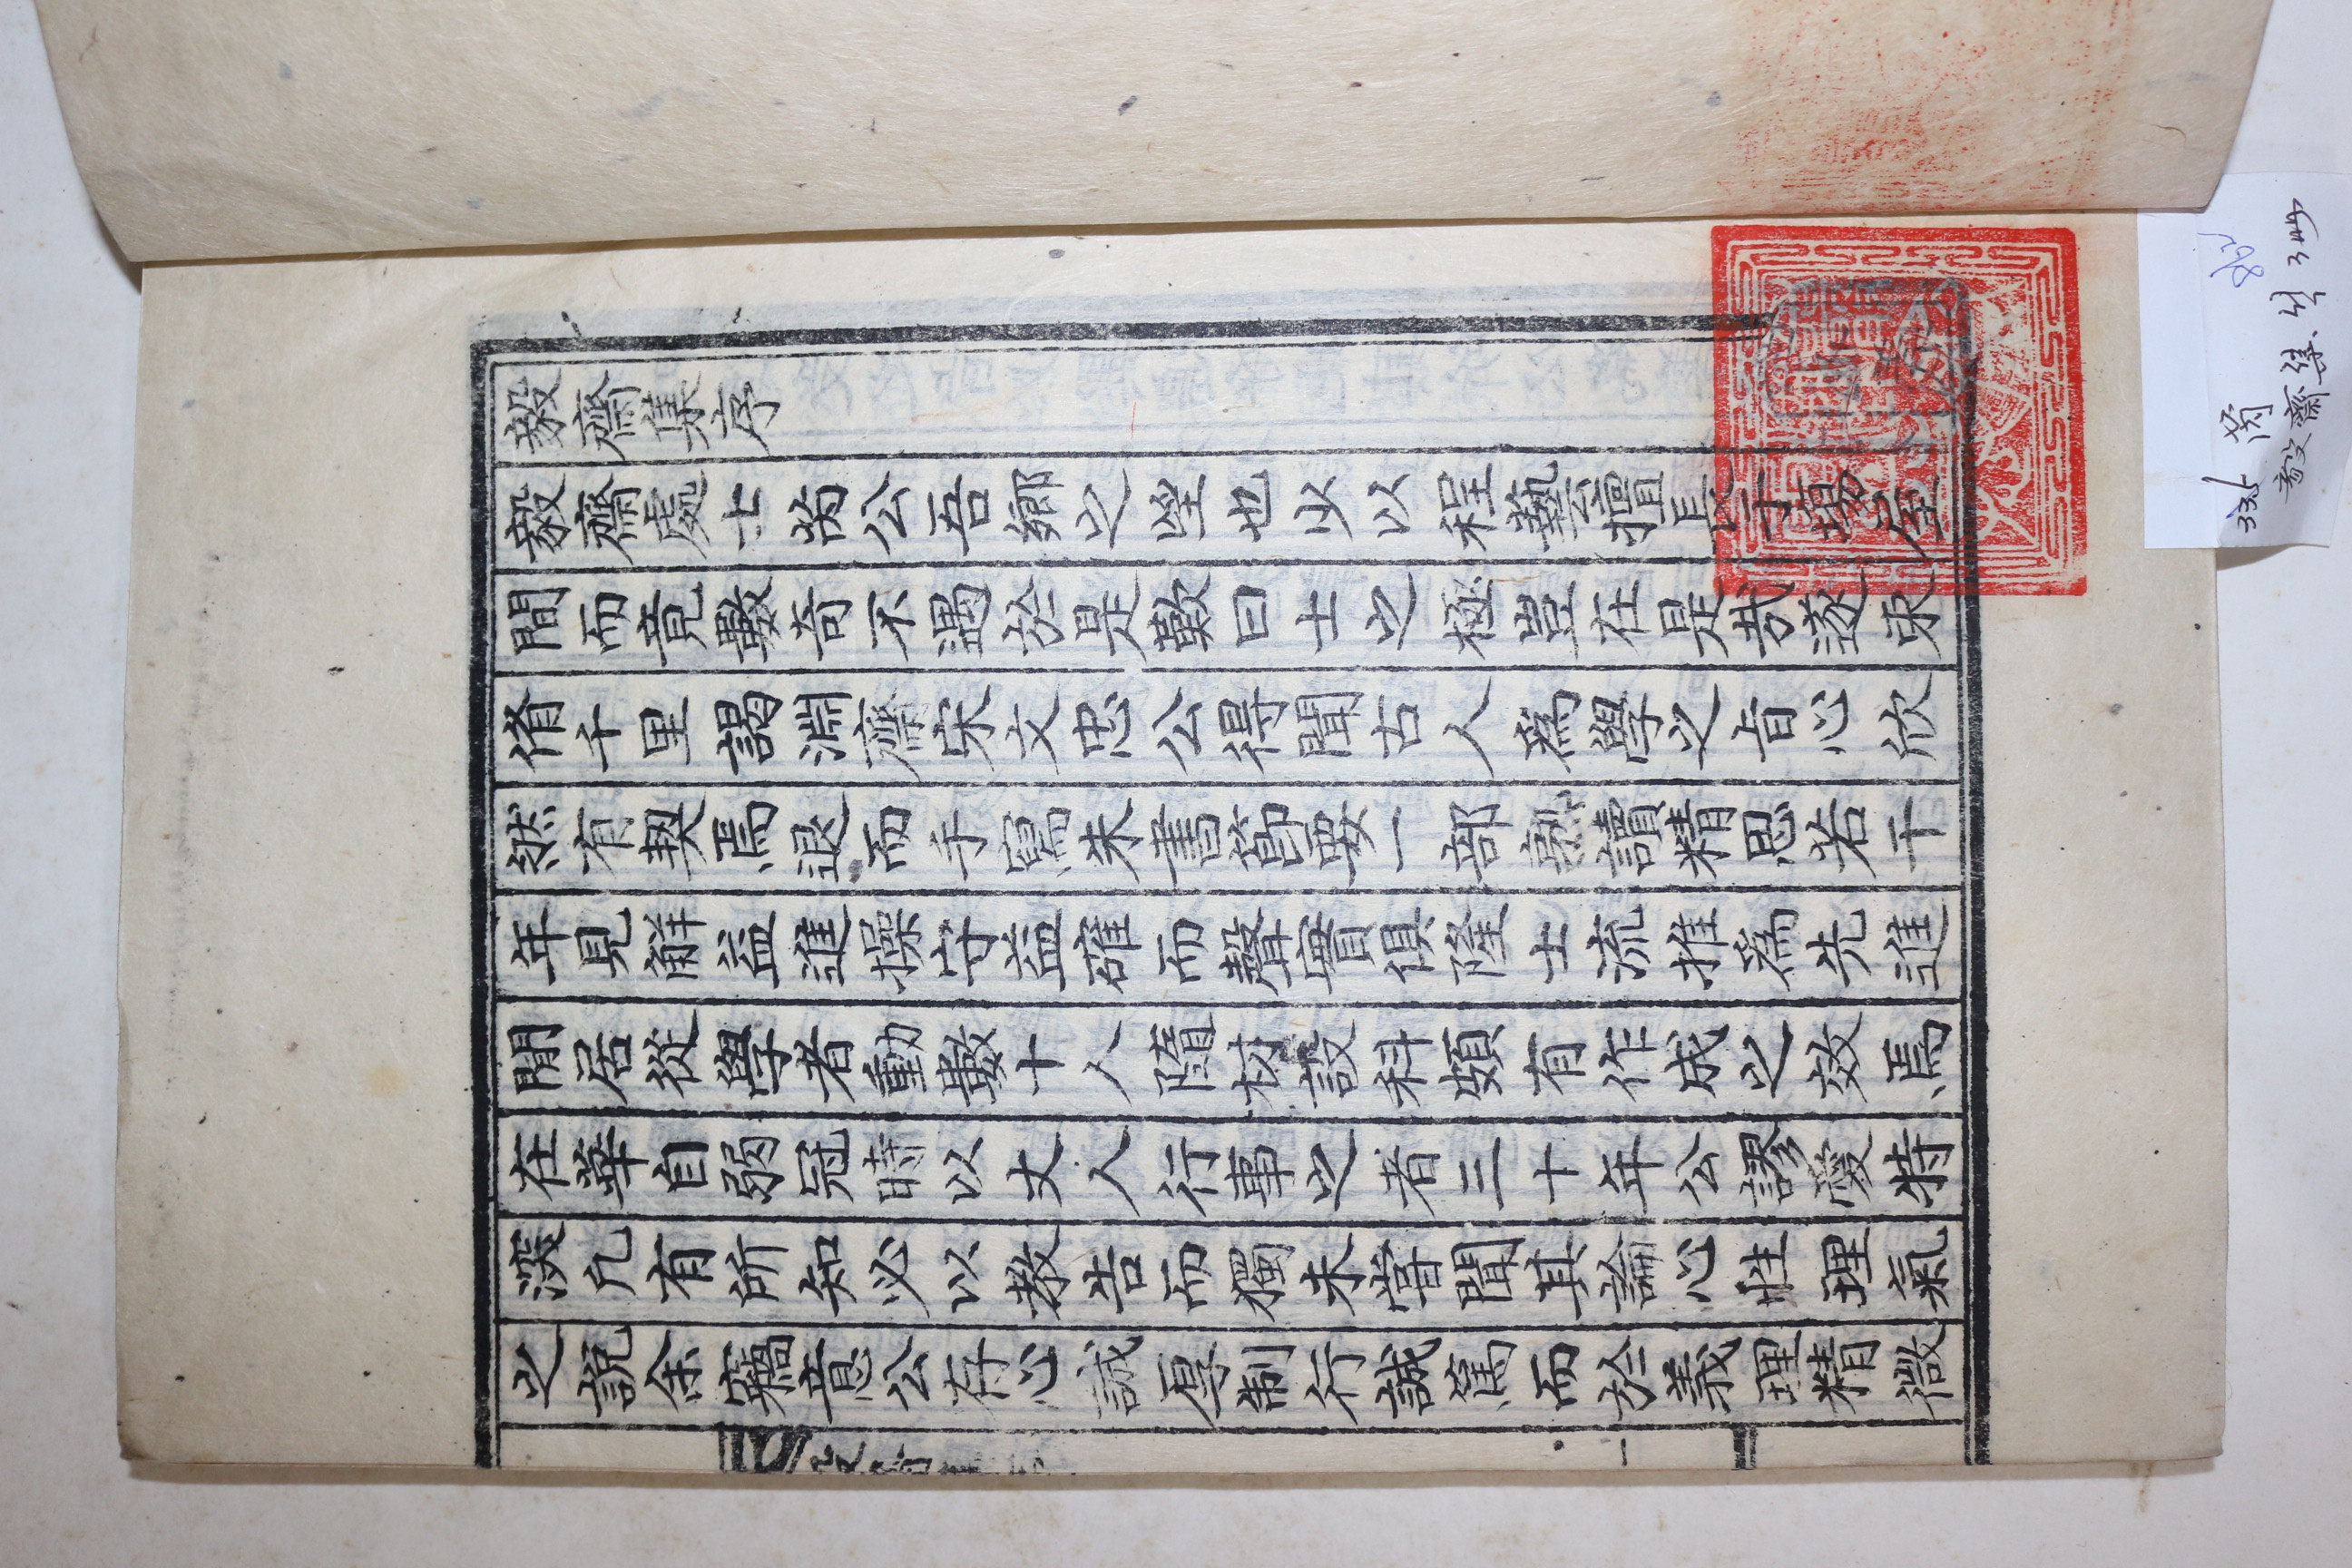 毅齋集序
毅齋處士芮公吾鄉之望也少以程藝擅長于場屋
間而竟數奇不遇於是歎曰士之極豈在是哉遂束
脩千里謁淵齋宋文忠公得聞古人爲學之旨心欣
然有契焉退而手寫朱書節要一部熟讀精思若干
年見解益進操守益確而聲實俱隆士流推爲先進
閒居從學者動數十人隨材設科頗有作成之效焉
在華自弱冠時以丈人行事之者三十年公謬愛特
深凡有所知必以教告而獨未嘗聞其論心性理氣
之說余竊意公存心誠厚制行誠篤而於義理精微
一
335 芮 862
毅齋集 3冊